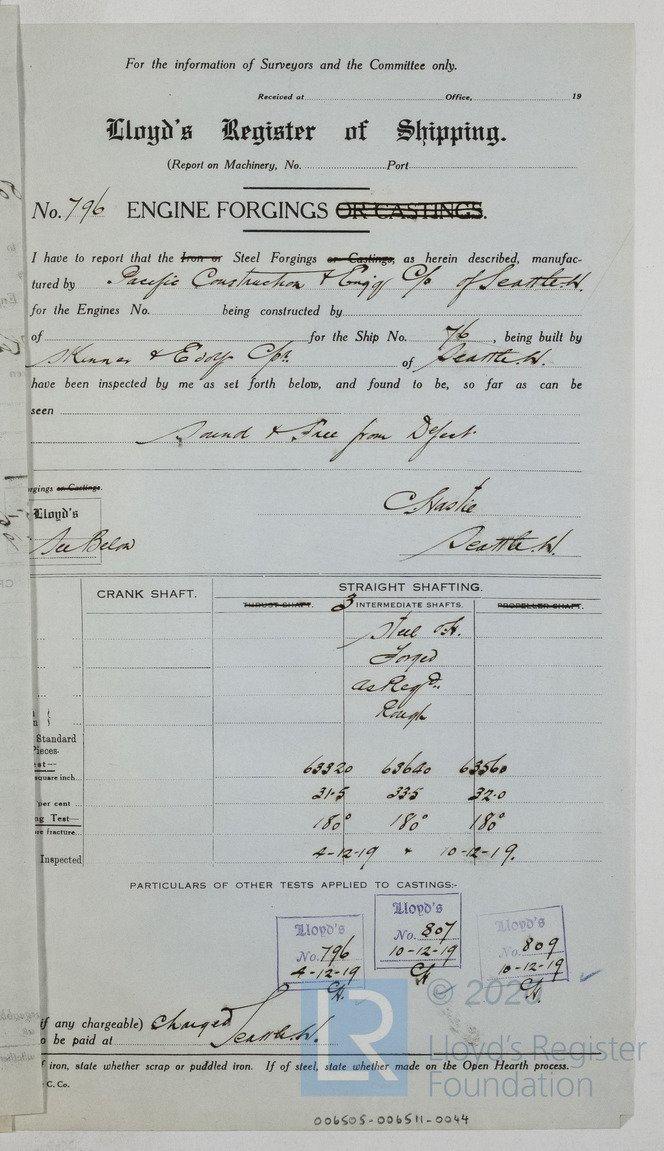 For the information of Surveyors and the Committee only.
Received at Office, 19
Lloyd's Register of Shipping.
(Report on Machinery, No. Port
No. 796 ENGINE FORGINGS OR CASTINGS.
I have to report that the Iron or Steel Forgings or Castings, as herein described, manufac-
tured by Pacific Construction & Engg Co of Seattle W.
for the Engines No. being constructed by
of for the Ship No. 76, being built by
Skinner & Eddy Cpn. of Seattle W.
have been inspected by me as set forth below, and found to be, so far as can be
seen
Sound & Free from Defect
rgings or Castings.
Lloyd's
See Below
C Hastie
Seattle W.
CRANK SHAFT. STRAIGHT SHAFTING.
THRUST SHAFT. 3 INTERMEDIATE SHAFTS. PROPELLER SHAFT.
Steel O.H.
Forged
as Reqd.
Rough
Standard
Pieces.
est—
square inch... 63320 63640 63560
per cent ... 31.5 33.5 32.0
ng Test— 180° 180° 180°
re fracture...
Inspected 4-12-19 & 10-12-19.
PARTICULARS OF OTHER TESTS APPLIED TO CASTINGS:-
Lloyd's No. 796 4-12-19 CH.
Lloyd's No. 807 10-12-19 CH
Lloyd's No. 809 10-12-19 CH.
if any chargeable) Charged
o be paid at Seattle W.
© 202
Lloyd's Register
Foundation
LR
f iron, state whether scrap or puddled iron. If of steel, state whether made on the Open Hearth process.
C. Co.
006505-006511-0044